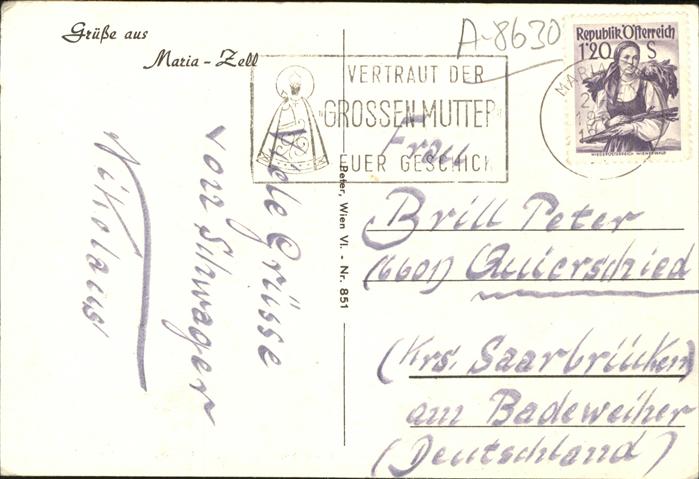 Grüße aus
Maria-Zell
A-8630
Republik Österreich
1'20 S
NIEDERÖSTERREICH WIENERWALD
MARIA
VERTRAUT DER
"GROSSEN MUTTER"
EUER GESCHICK
Viele Grüsse
von Schwager
Nikolaus
Peter, Wien VI. - Nr. 851
Frau
Brill Peter
(6601) Quierschied
(Krs. Saarbrücken)
am Badeweiher
(Deutschland)